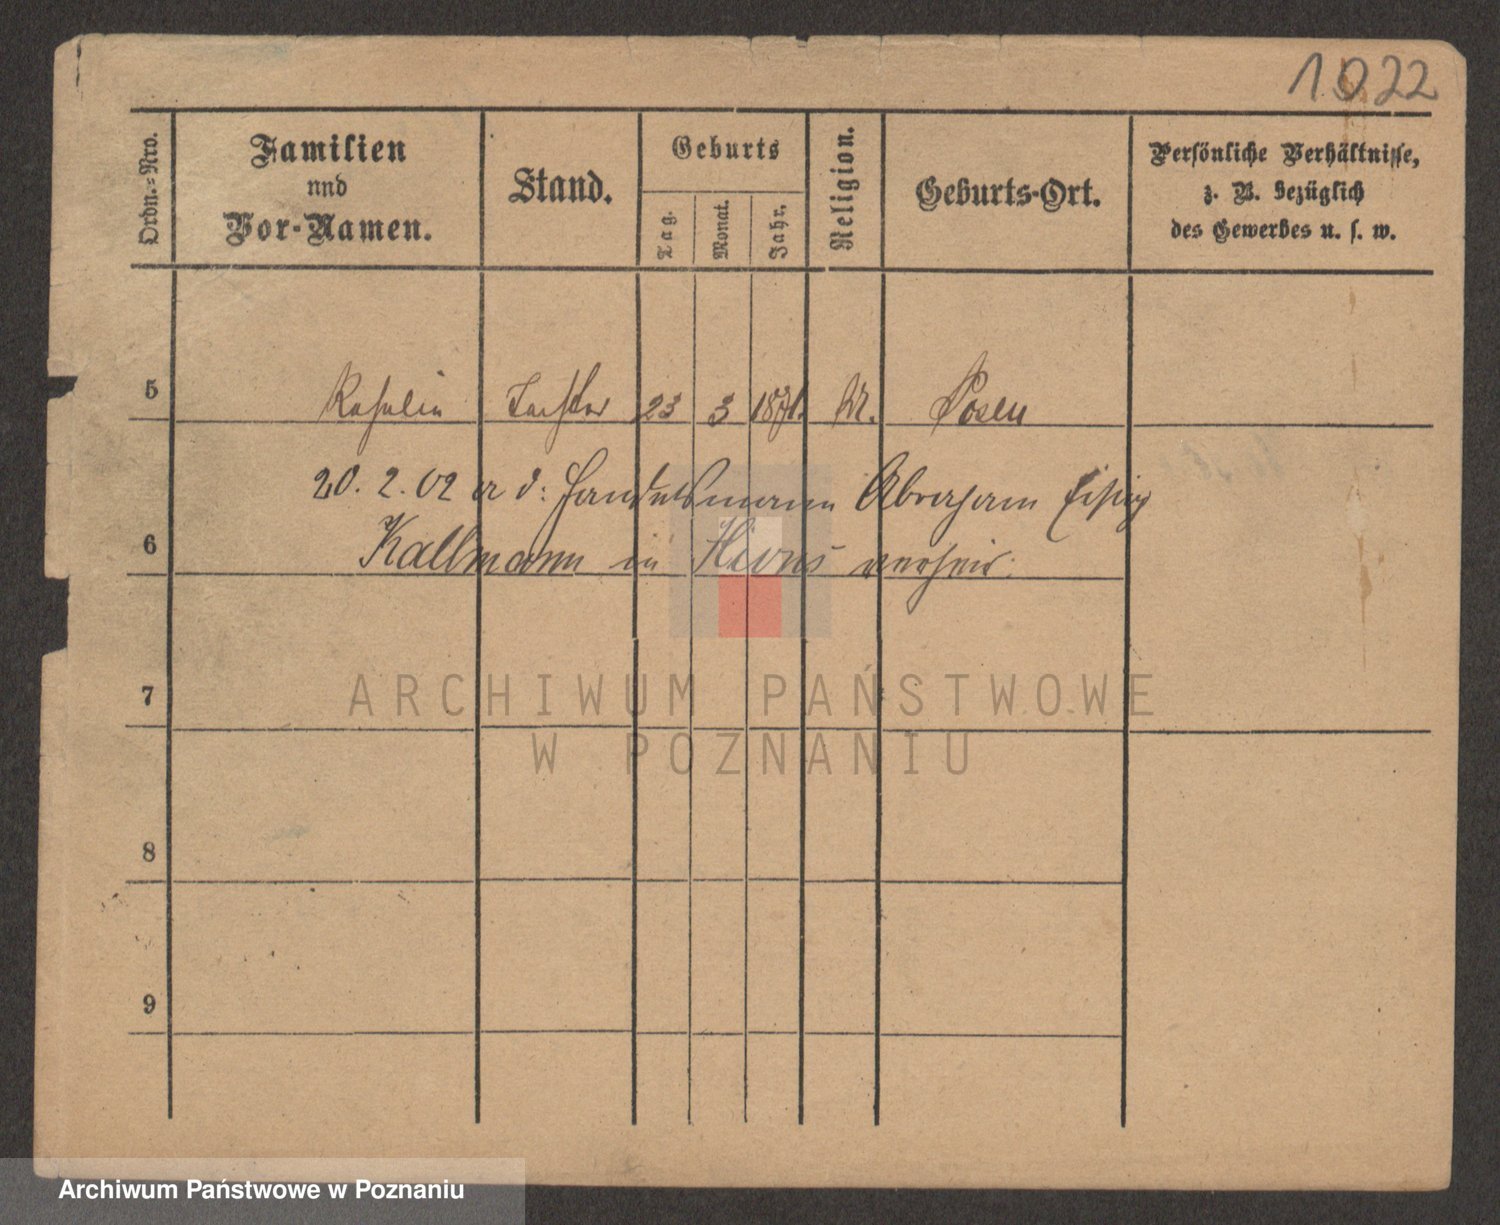 1022
Ordn.-Nro.
Familien
und
Vor-Namen.
Stand.
Geburts
Tag.
Monat.
Jahr.
Religion.
Geburts-Ort.
Persönliche Verhältnisse,
z. B. bezüglich
des Gewerbes u. s. w.
5 Rosalie Tochter 23 3 1871. M. Posen
20. 2. 02 a d: Handelsmann Abraham
6 Kallmann in Xions verheir.
7
8
9
ARCHIWUM PAŃSTWOWE
W POZNANIU
Archiwum Państwowe w Poznaniu